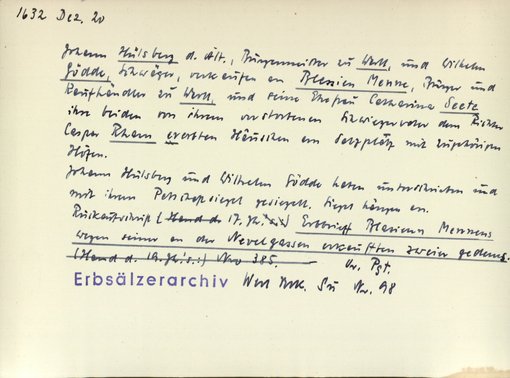 1632 Dez. 20
Johann Hülsberg d. Ält., Bürgermeister zu Werl, und Wilhelm
Gödde, Schwäger, verkaufen an Blasien Menne, Bürger und
Kaufhändler zu Werl, und seine Ehefrau Catharina Seetz
ihre beiden von ihrem verstorbenen Schwiegervater dem Richter
Caspar Rham ererbten Häuschen am Salzplatz mit zugehörigen
Höfen.
Johann Hülsberg und Wilhelm Gödde haben unterschrieben und
mit ihrem Petschaftsiegel gesiegelt. Siegel hängen an.
Rückaufschrift (Hand d. 17. Jh.'s:) Erbbrieff Blasien Mennens
wegen seiner an der Nevelgassen erkaufften zweier gedemer.
(Hand d. 19. Jh.'s:) Nro 385.
Or. Pgt.
Erbsälzerarchiv Werl Urk. Nr. 98